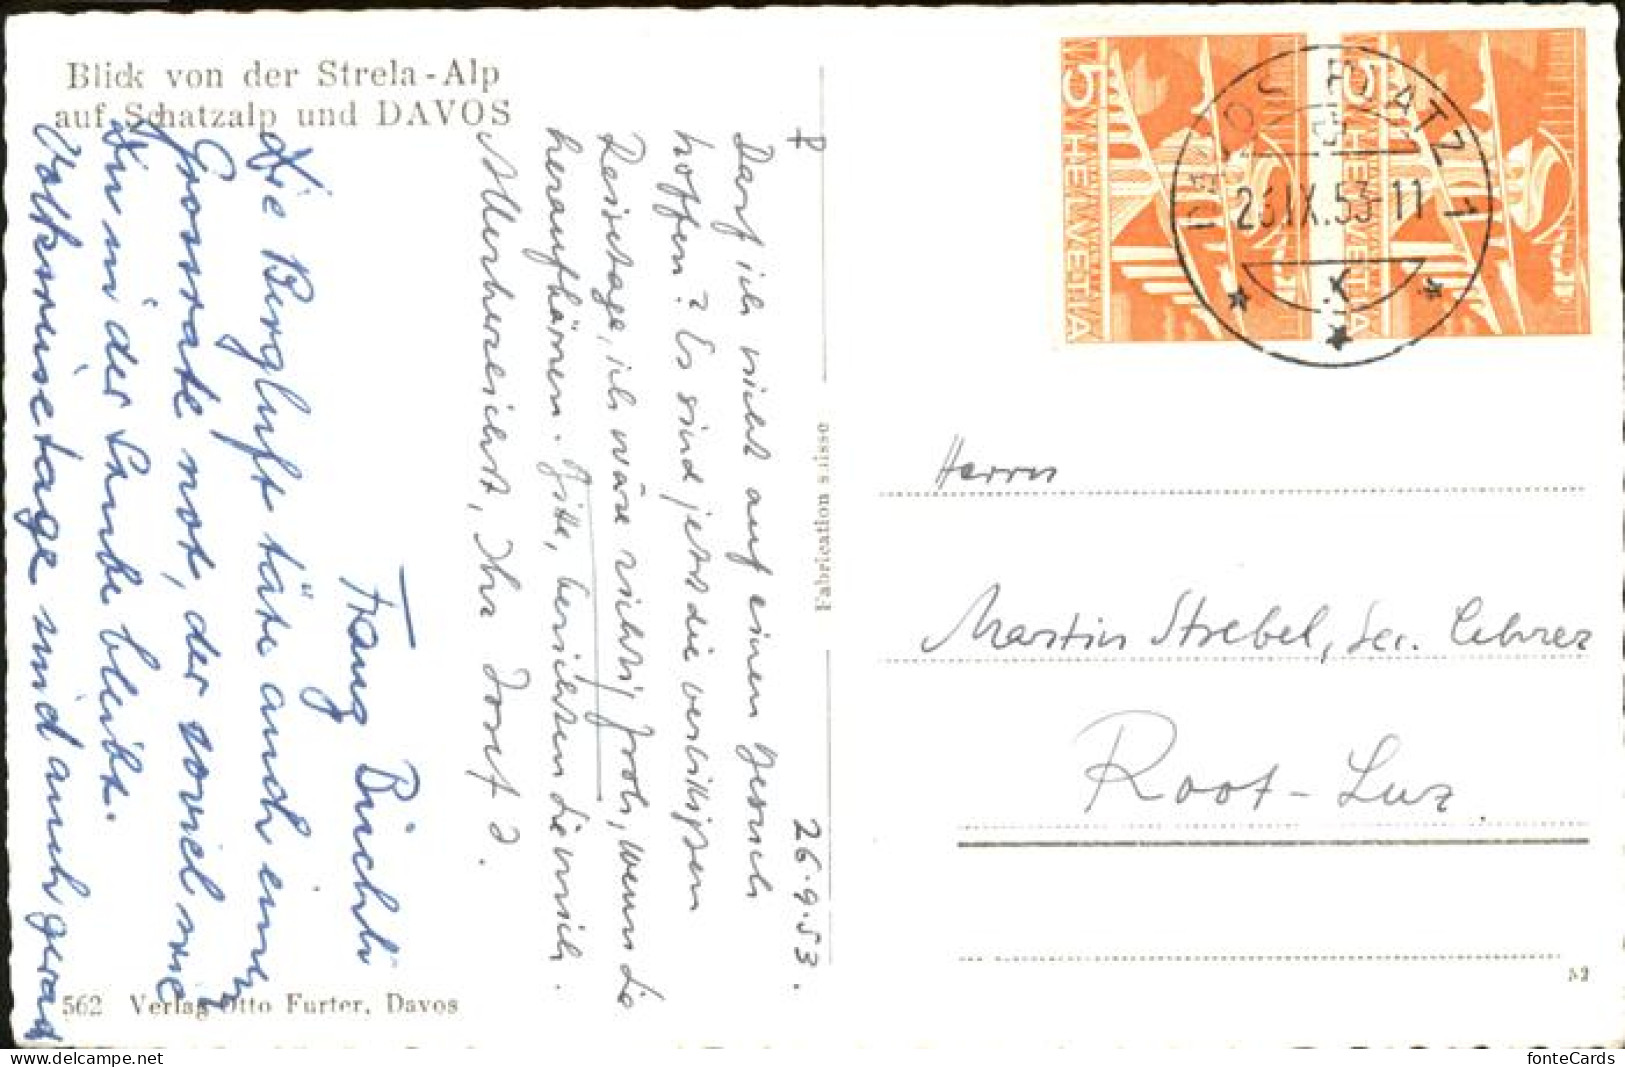 Blick von der Strela-Alp
auf Schatzalp und DAVOS
26.9.53.
Darf ich nicht auf einen Besuch
hoffen? Es sind jetzt die verbilligten
Reisetage, ich wäre richtig froh, wenn Sie
heraufkämen. Bitte, besichten Sie mich.
Allerherzlichst, Ihr Josef
Franz Büchi
Die Bergluft täte auch einem
Grossrate not, der soviel wie
Du in der Stube bleibt.
Volksreisetage sind auch gerad
562 Verlag Otto Furter, Davos
Fabrication suisse
5 HELVETIA
5 HELVETIA
DAVOS PLATZ 1
26.IX.53-11
Herrn
Martin Strebel, Sec. Lehrer
Root-Luz.
52
fonteCards
https://www.ansichtskartenversand.com/